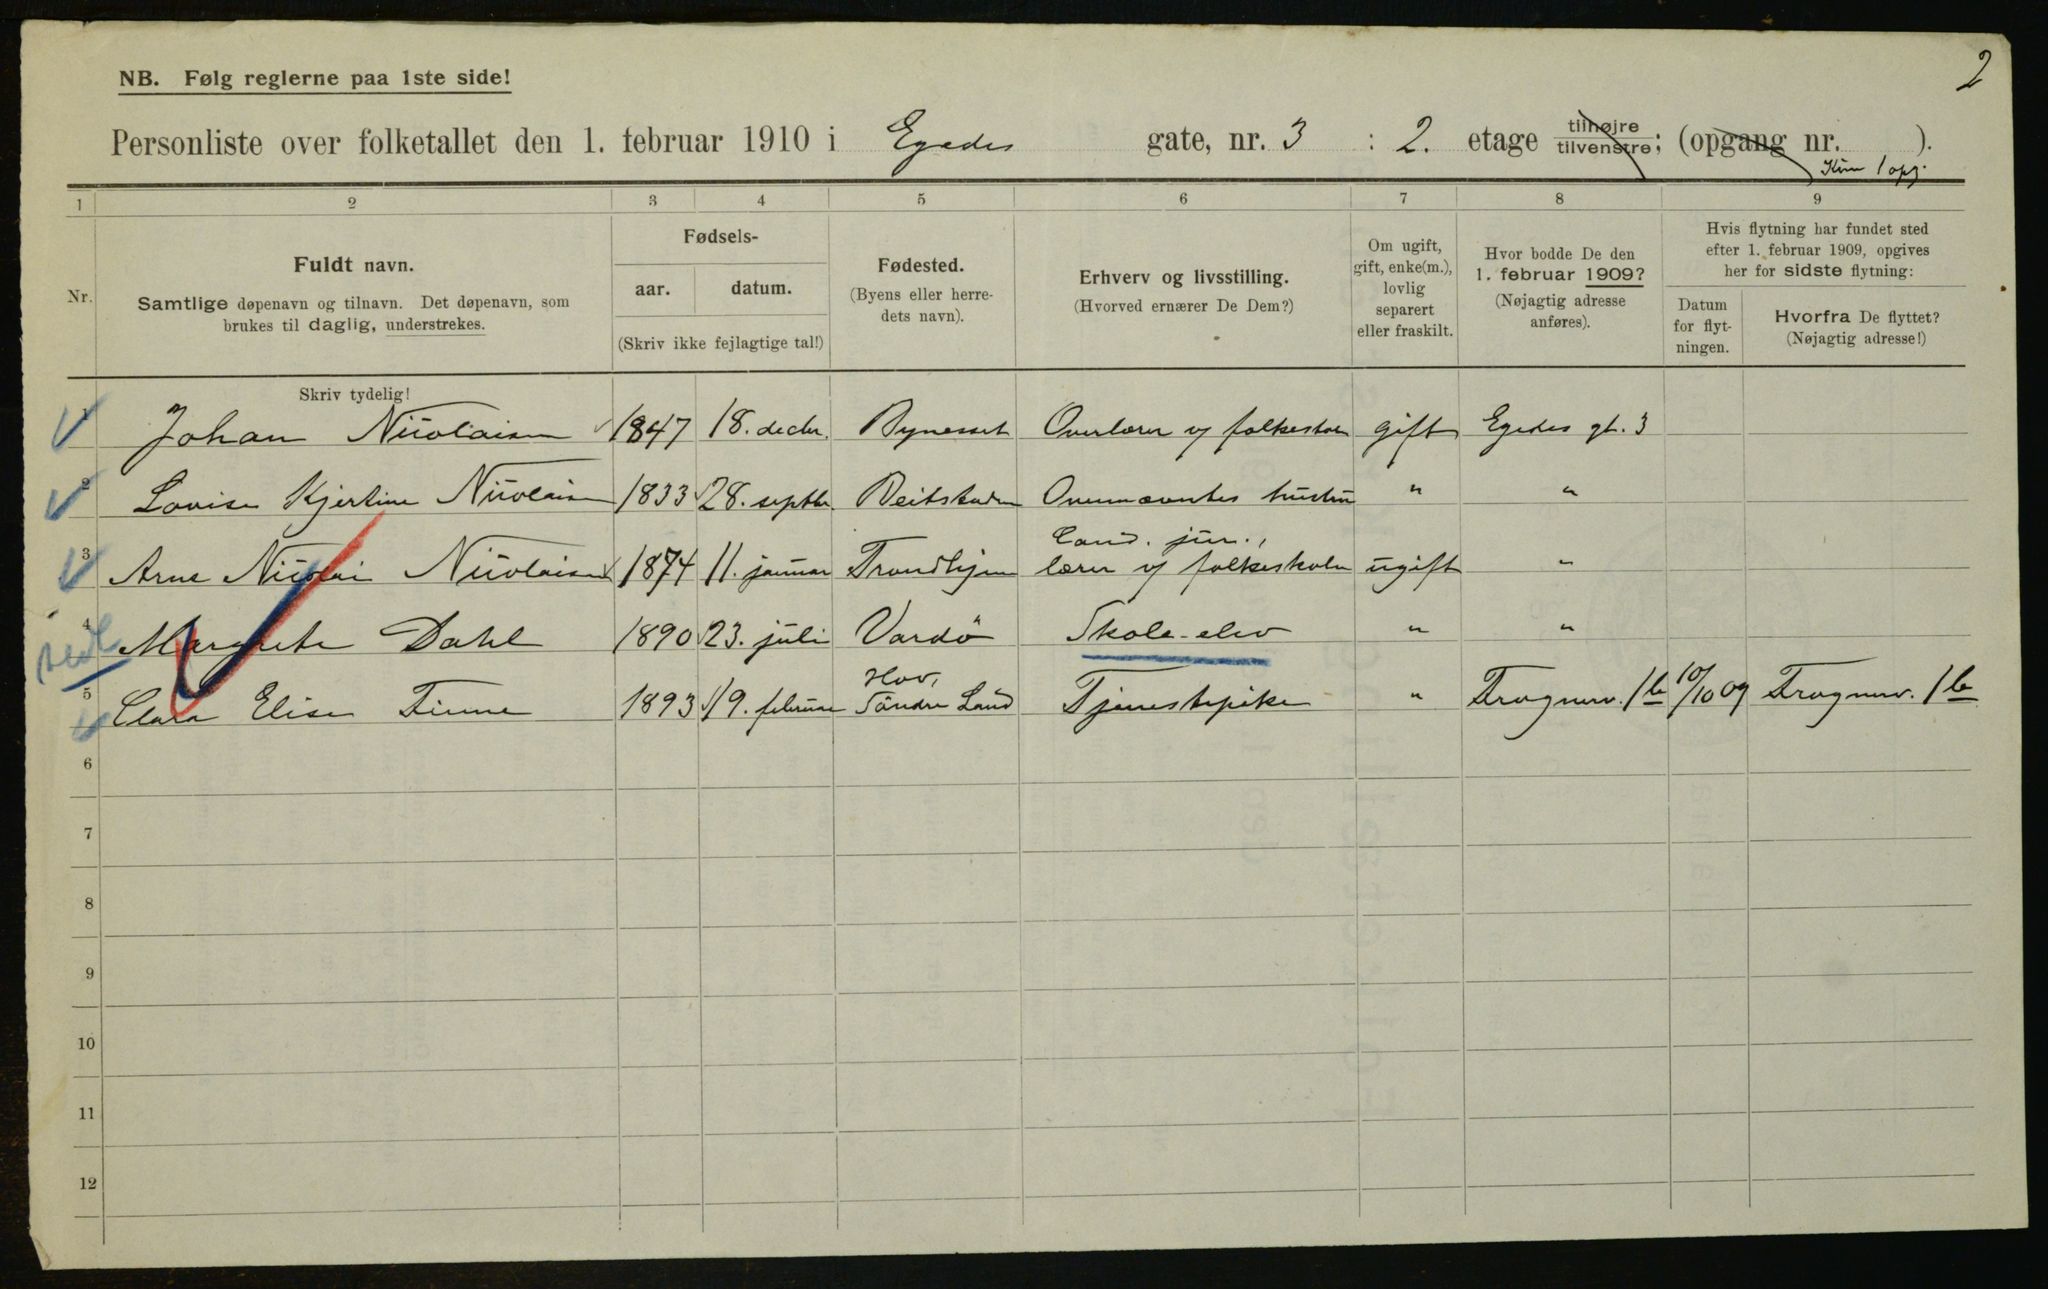 2
NB. Følg reglerne paa 1ste side!
Personliste over folketallet den 1. februar 1910 i Egedes gate, nr. 3 : 2. etage tilhøjre tilvenstre; (opgang nr. ).
Kun 1 opg.
1 2 3 4 5 6 7 8 9
Nr.
Fuldt navn.
Samtlige døpenavn og tilnavn. Det døpenavn, som
brukes til daglig, understrekes.
Fødsels-
aar. datum.
(Skriv ikke fejlagtige tal!)
Fødested.
(Byens eller herre-
dets navn).
Erhverv og livsstilling.
(Hvorved ernærer De Dem?)
Om ugift,
gift, enke(m.),
lovlig
separert
eller fraskilt.
Hvor bodde De den
1. februar 1909?
(Nøjagtig adresse
anføres).
Hvis flytning har fundet sted
efter 1. februar 1909, opgives
her for sidste flytning:
Datum
for flyt-
ningen.
Hvorfra De flyttet?
(Nøjagtig adresse!)
Skriv tydelig!
1 Johan Nicolaisen 1847 18. decbr. Bynesset Overlærer v folkeskolen gift Egedes gt. 3
2 Lovise Kjerstine Nicolaisen 1833 28. septbr. Beitstaden Ovennævntes hustru " "
Cand. jur.,
3 Arne Nicolai Nicolaisen 1874 11. januar Trondhjem lærer v folkeskolen ugift "
4 Margrete Dahl 1890 23. juli Vardö Skole-elev " "
Hov,
5 Clara Elise Finne 1893 19. februar Söndre Land Tjenestepike " Frognerv. 1b 10/10 09 Frognerv. 1b
6
7
8
9
10
11
12